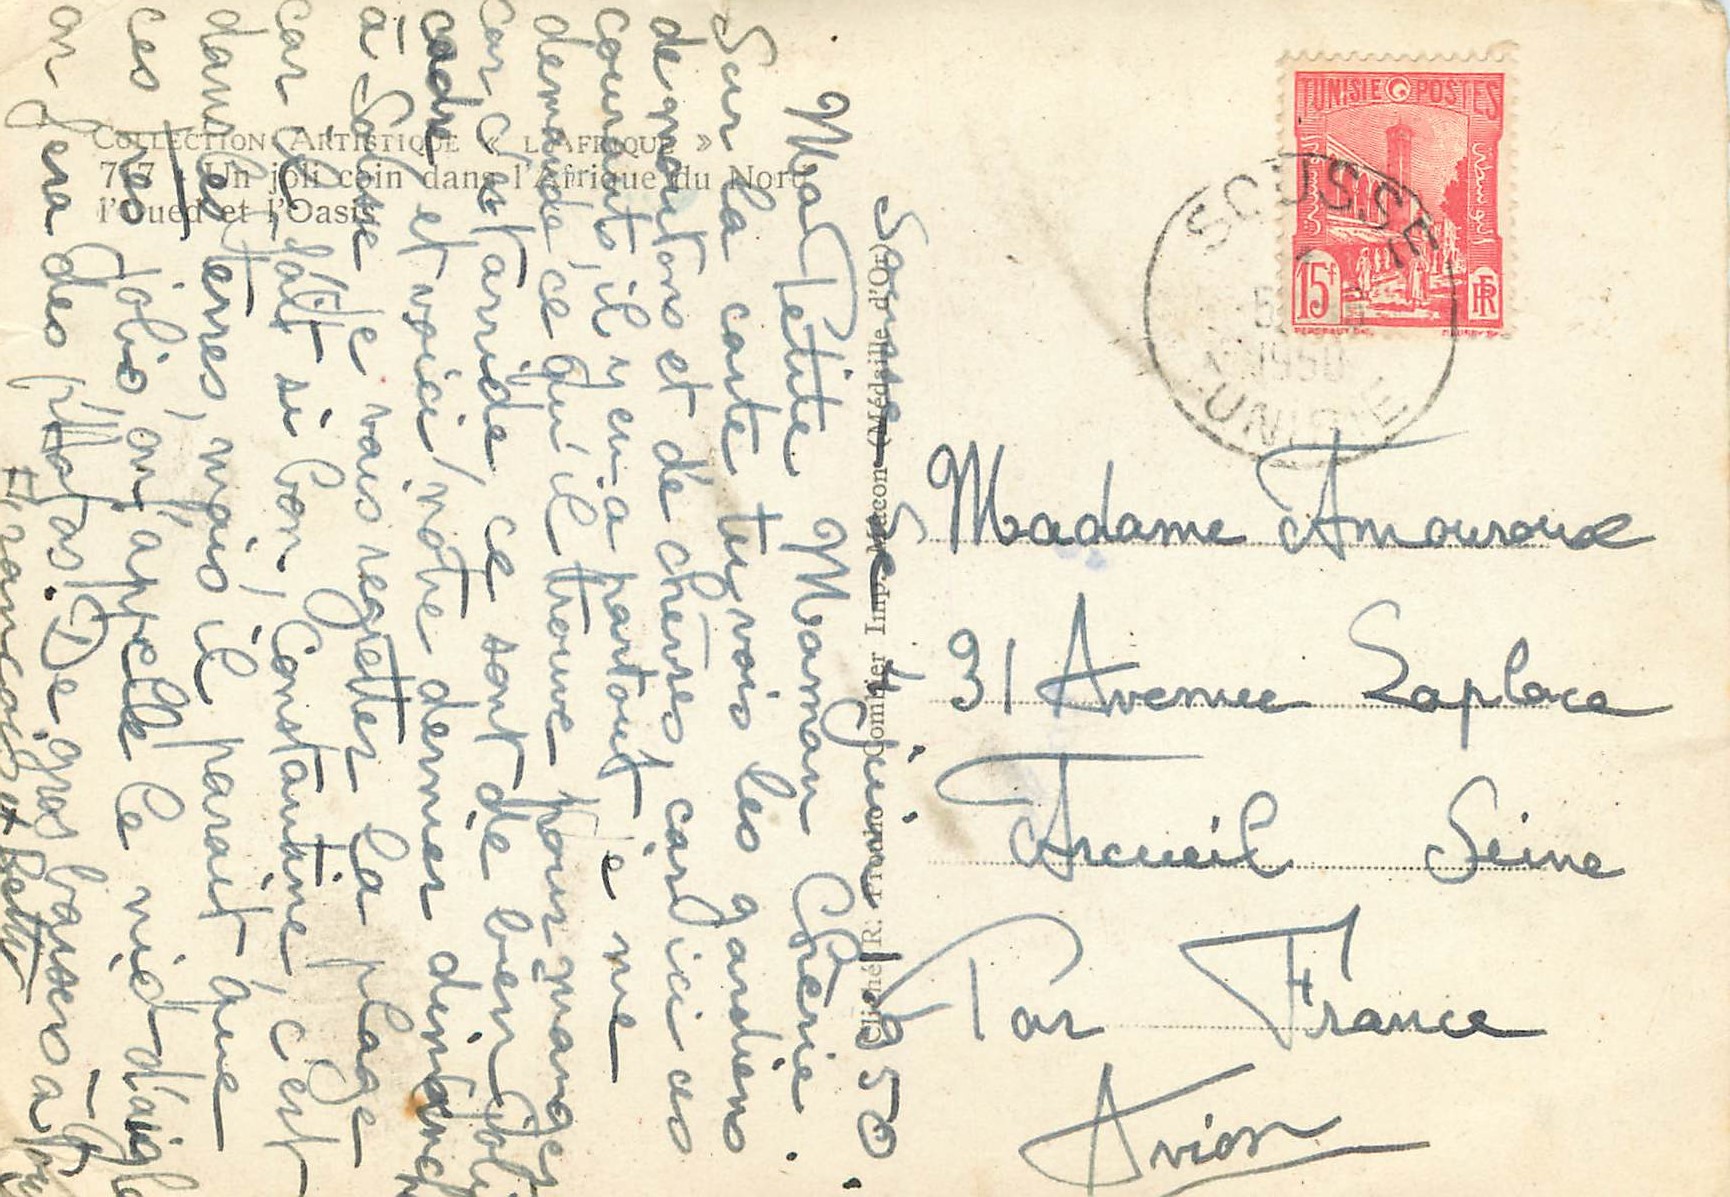 COLLECTION ARTISTIQUE « L'AFRIQUE »
7 7 - Un joli coin dans l'Afrique du Nord
l'Oued et l'Oasis
Cliché R. Prouho Combier Imp. Mâcon (Médaille d'Or)
TUNISIE POSTES
15f
RF
SOUSSE
1950
TUNISIE
Sousse le 4 juin 1950.
Ma Petite Maman Chérie.
Sur la carte tu vois les gardiens
de moutons et de chèvres car ici ces
courants, il y en a partout je me
demande ce qu'il trouve pour manger
car c'est aride, ce sont de bien joli
cadre et voici notre dernier dimanche
à Sousse je vais regretter la plage
car il fait si bon, Constantine c'est
dans les terres, mais il parait que
ces très jolis, on l'appelle le nid d'aigle
on fera des photos. De gros baisers à
François et Betty
Madame Amouroux
31 Avenue Laplace
Arcueil Seine
Par France
Avion